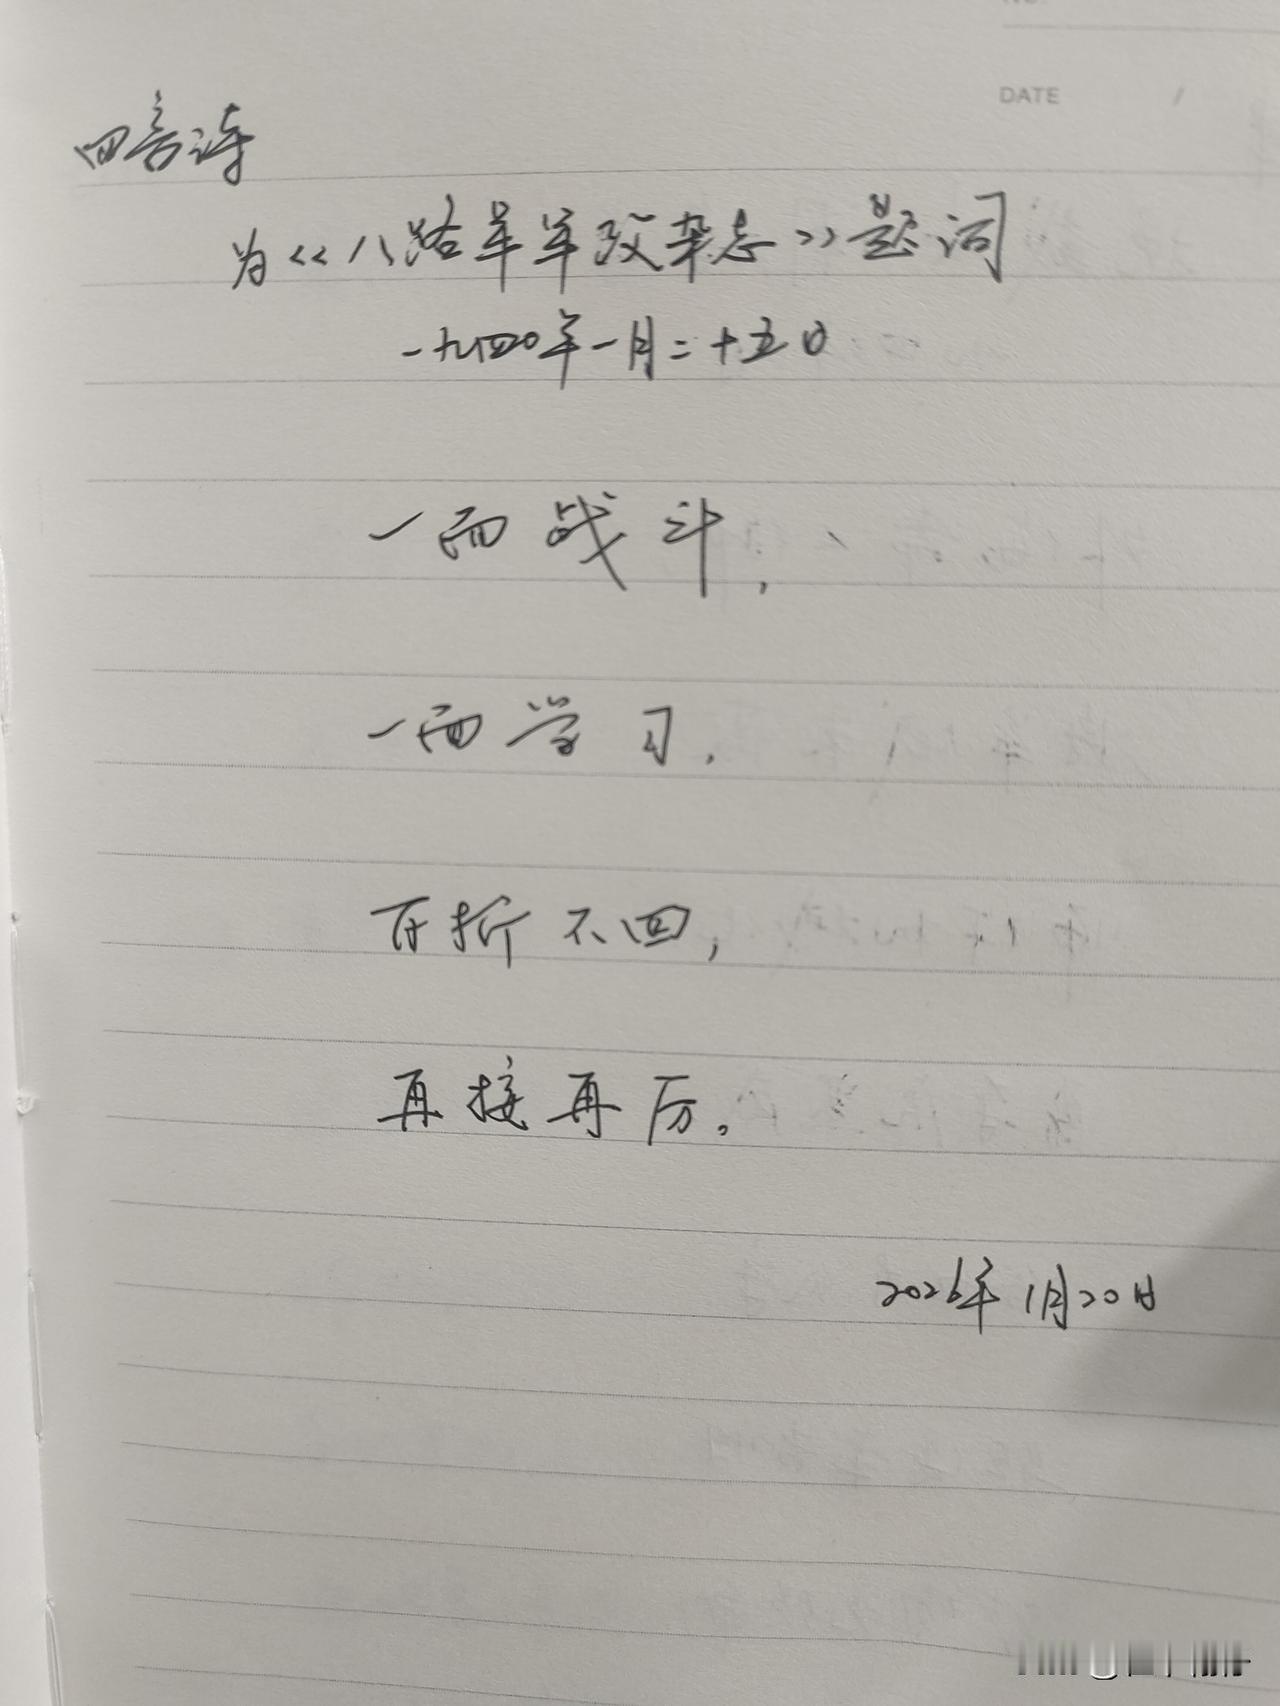 DATE /
四言诗
为《八路军军政杂志》题词
一九四〇年一月二十五日
一面战斗，
一面学习，
百折不回，
再接再厉。
2026年1月20日